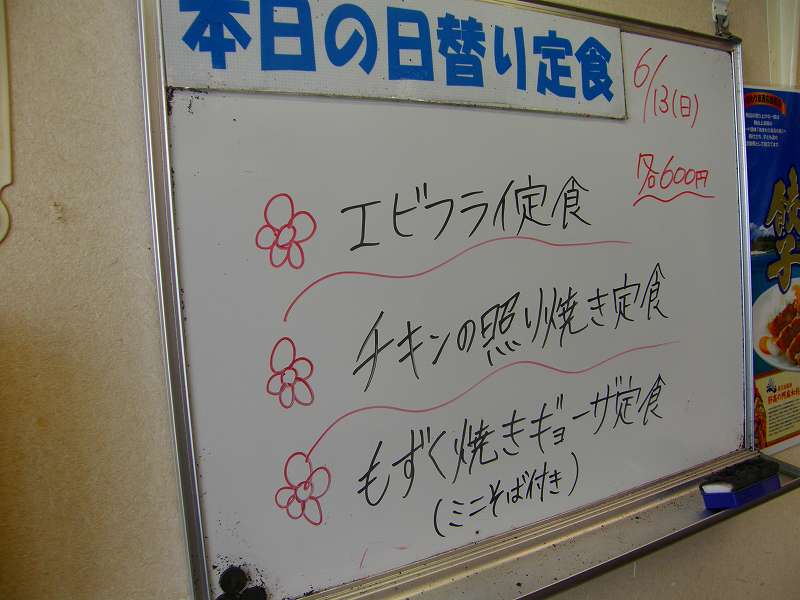 本日の日替り定食
6/13(日)
各600円
エビフライ定食
チキンの照り焼き定食
もずく焼きギョーザ定食
(ミニそば付き)
餃子